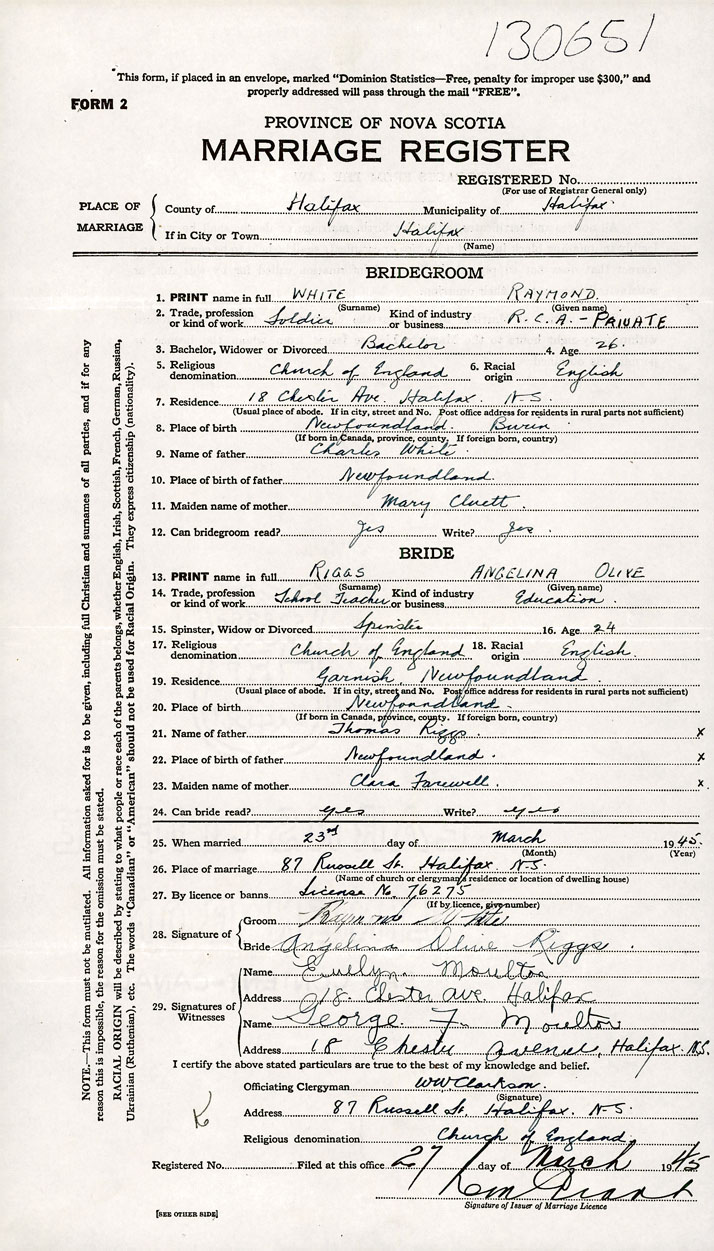 130651
This form, if placed in an envelope, marked "Dominion Statistics—Free, penalty for improper use $300," and
properly addressed will pass through the mail "FREE".
FORM 2
PROVINCE OF NOVA SCOTIA
MARRIAGE REGISTER
REGISTERED No.
(For use of Registrar General only)
PLACE OF MARRIAGE
County of Halifax Municipality of Halifax
If in City or Town Halifax
(Name)
BRIDEGROOM
1. PRINT name in full WHITE RAYMOND
(Surname) (Given name)
2. Trade, profession or kind of work Soldier Kind of industry or business R.C.A. - PRIVATE
3. Bachelor, Widower or Divorced Bachelor 4. Age 26
5. Religious denomination Church of England 6. Racial origin English
7. Residence 18 Chester Ave. Halifax N.S.
(Usual place of abode. If in city, street and No. Post office address for residents in rural parts not sufficient)
8. Place of birth Newfoundland. Burin
(If born in Canada, province, county. If foreign born, country)
9. Name of father Charles White
10. Place of birth of father Newfoundland.
11. Maiden name of mother Mary Cluett.
12. Can bridegroom read? Yes Write? Yes.
BRIDE
13. PRINT name in full RIGGS ANGELINA OLIVE
(Surname) (Given name)
14. Trade, profession or kind of work School Teacher Kind of industry or business Education.
15. Spinster, Widow or Divorced Spinster 16. Age 24
17. Religious denomination Church of England 18. Racial origin English.
19. Residence Garnish, Newfoundland.
(Usual place of abode. If in city, street and No. Post office address for residents in rural parts not sufficient)
20. Place of birth Newfoundland.
(If born in Canada, province, county. If foreign born, country)
21. Name of father Thomas Riggs x
22. Place of birth of father Newfoundland. x
23. Maiden name of mother Clara Farewell. x
24. Can bride read? yes Write? yes
25. When married 23rd day of March 1945.
(Month) (Year)
26. Place of marriage 87 Russell St. Halifax N.S.
(Name of church or clergyman's residence or location of dwelling house)
27. By licence or banns License No. 76275
(If by licence, give number)
28. Signature of
Groom Raymond White
Bride Angelina Olive Riggs.
29. Signatures of Witnesses
Name Evelyn Moulton
Address 18 Chester Ave. Halifax
Name George F. Moulton
Address 18 Chester Avenue, Halifax. N.S.
I certify the above stated particulars are true to the best of my knowledge and belief.
Officiating Clergyman WW Clarkson.
(Signature)
Address 87 Russell St. Halifax N.S.
Religious denomination Church of England.
Registered No. Filed at this office 27 day of March 1945
Signature of Issuer of Marriage Licence
[SEE OTHER SIDE]
NOTE.—This form must not be mutilated. All information asked for is to be given, including full Christian and surnames of all parties, and if for any
reason this is impossible, the reason for the omission must be stated.
RACIAL ORIGIN will be described by stating to what people or race each of the parents belongs, whether English, Irish, Scottish, French, German, Russian,
Ukrainian (Ruthenian), etc. The words "Canadian" or "American" should not be used for Racial Origin. They express citizenship (nationality).